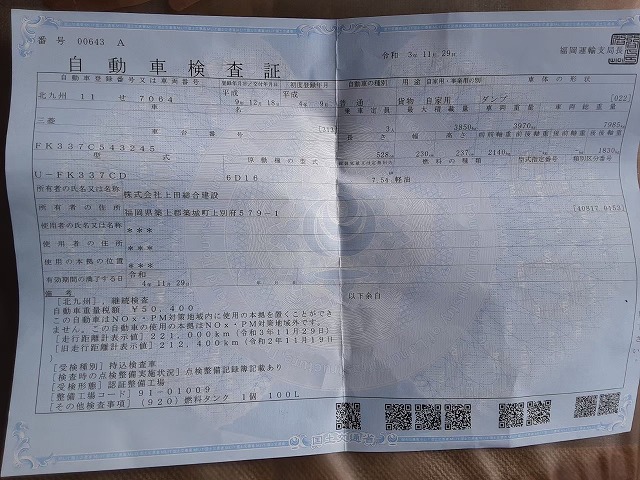 番号 00643 A
令和 3年11月29日
福岡運輸支局長
自動車検査証
自動車登録番号又は車両番号 登録年月日/交付年月日 初度登録年月 自動車の種別 用途 自家用・事業用の別 車体の形状
北九州 11 せ 7064 平成 9年12月18日 平成 4年9月 普通 貨物 自家用 ダンプ [022]
車名 乗車定員 最大積載量 車両重量 車両総重量
三菱 [213] 3人 3850kg 3970kg 7985kg
車台番号 長さ 幅 高さ 前前軸重 前後軸重 後前軸重 後後軸重
FK337C543245 528cm 230cm 237cm 2140kg -kg -kg 1830kg
型式 原動機の型式 総排気量又は定格出力 燃料の種類 型式指定番号 類別区分番号
U-FK337CD 6D16 7.54 軽油
所有者の氏名又は名称 株式会社上田総合建設
所有者の住所 福岡県築上郡築城町上別府579-1 [40817 0153]
使用者の氏名又は名称 ***
使用者の住所 ***
使用の本拠の位置 ***
有効期間の満了する日 令和 4年11月29日
備考 以下余白
[北九州],継続検査
自動車重量税額 ¥50,400
この自動車はNOx・PM対策地域内に使用の本拠を置くことができ
ません。この自動車の使用の本拠はNOx・PM対策地域外です。
[走行距離計表示値] 221,000km (令和3年11月29日)
[旧走行距離計表示値] 212,400km (令和2年11月19日
[受検種別] 持込検査車
[検査時の点検整備実施状況] 点検整備記録簿記載あり
[受検形態] 認証整備工場
[整備工場コード] 91-01009
[その他検査事項] (920) 燃料タンク 1個 100L
国土交通省